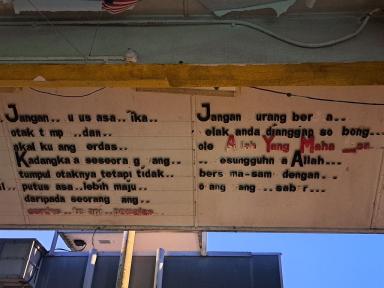 Jangan.. u us asa.. ika..
otak t mp ..dan..
akal ku ang erdas..
Kadangka a seseora g ang..
tumpul otaknya tetapi tidak..
putus asa..lebih maju..
daripada seorang ang..
Jangan urang ber a..
elak anda dianggap so bong..
ole A ah Yang Maha
.. esungguhn a Allah...
bers ma-sam dengan..
o ang ang sab r...